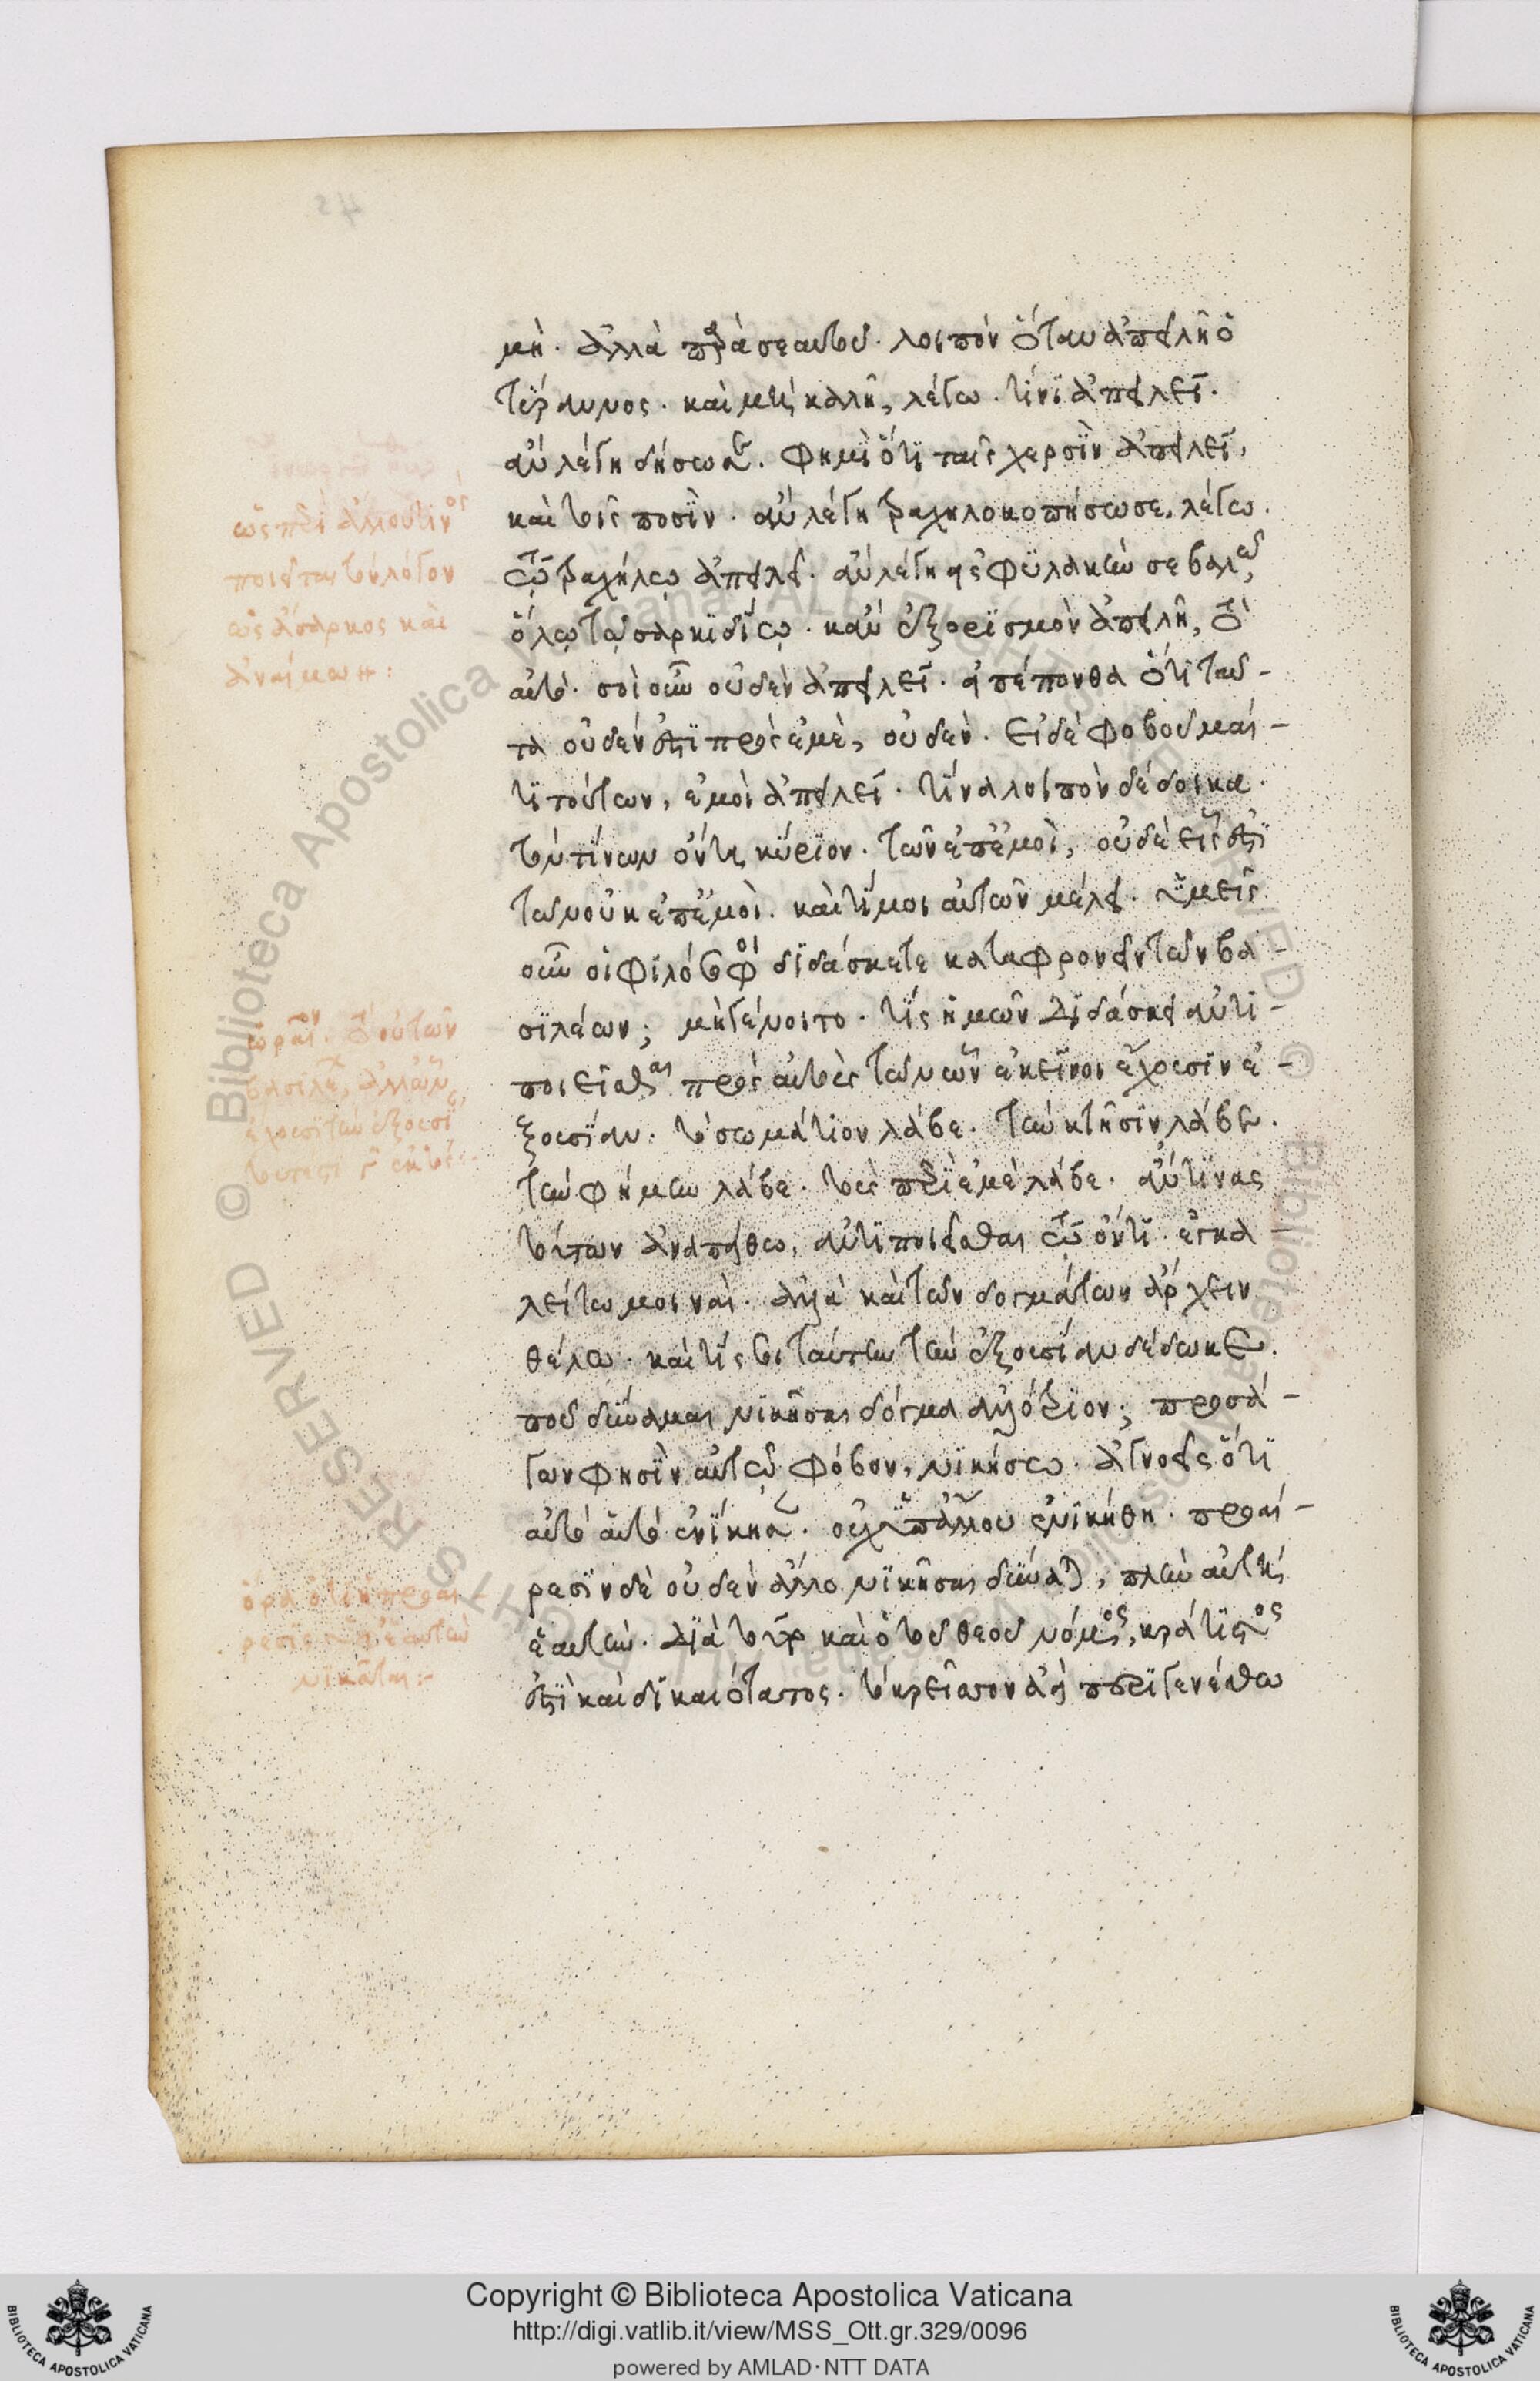 μή. ἀλλὰ παρὰ σεαυτοῦ. λοιπὸν ὅταν ἀπειλῆ ὁ
τύραννος. καὶ με καλῆ, λέγω. τίνι ἀπειλεῖ.
ἂν λέγη δήσω σε. φημὶ ὅτι ταῖς χερσὶν ἀπειλεῖ,
καὶ τοῖς ποσίν. ἂν λέγη τραχηλοκοπήσω σε, λέγω.
τῶ τραχήλω ἀπειλεῖ. ἂν λέγη εἰς φυλακὴν σε βαλῶ,
ὅλω τῶ σαρκιδίω. κἂν ἐξορισμὸν ἀπειλῆ, τὸ
αὐτό. σοὶ οὖν οὐδὲν ἀπειλεῖ. εἰ πέπονθα ὅτι ταῦ-
τα οὐδέν ἐστι πρὸς ἐμὲ, οὐδέν. εἰ δὲ φοβοῦμαί-
τι τούτων, ἐμοὶ ἀπειλεῖ. τίνα λοιπὸν δέδοικα.
τὸν τίνων ὄντα κύριον. τῶν ἐπ' ἐμοὶ, οὐδὲ εἷς ἐστι
τῶν οὐκ ἐπ' ἐμοί. καὶ τί μοι αὐτῶν μέλει. ὑμεῖς
οὖν οἱ φιλόσοφοι διδάσκετε καταφρονεῖν τῶν βα-
σιλέων; μὴ γένοιτο. τίς ἡμῶν διδάσκει ἀντι-
ποιεῖσθαι πρὸς αὐτοὺς τῶν ὧν ἐκεῖνοι ἔχουσιν ἐ-
ξουσίαν. τὸ σωμάτιον λάβε. τὴν κτῆσιν λάβε.
τὴν φήμην λάβε. τοὺς περὶ ἐμὲ λάβε. ἄν τινας
τούτων ἀναπείθω, ἀντιποιεῖσθαι τῶ ὄντι. ἐγκα-
λείτω μοι ναί. ἀλλὰ καὶ τῶν δογμάτων ἄρχειν
θέλω. καὶ τίς σοι ταύτην τὴν ἐξουσίαν δέδωκε.
ποῦ δύναμαι νικῆσαι δόγμα ἀλλότριον; προσά-
γων φησὶν αὐτῶ φόβον, νικήσω. ἀγνοεῖς ὅτι
αὐτὸ αὑτὸ ἐνίκησεν. οὐχ ὑπ' ἄλλου ἐνικήθη. προαί-
ρεσιν δὲ οὐδὲν ἄλλο νικῆσαι δύναται, πλὴν αὐτὴ
ἑαυτήν. διὰ τοῦτο καὶ ὁ τοῦ θεοῦ νόμος, κράτιστος
ἐστὶ καὶ δικαιότατος. τὸ κρεῖσσον ἀεὶ περιγενέσθω
ὡς περὶ ἄλλου τινὸς
ποιεῖται τὸν λόγον
ὡς ἄσαρκος καὶ
ὅρα ὅτι ἡ προαί-
ρεσις ἑαυτὴν
νικᾶται:-
Copyright © Biblioteca Apostolica Vaticana
http://digi.vatlib.it/view/MSS_Ott.gr.329/0096
powered by AMLAD·NTT DATA